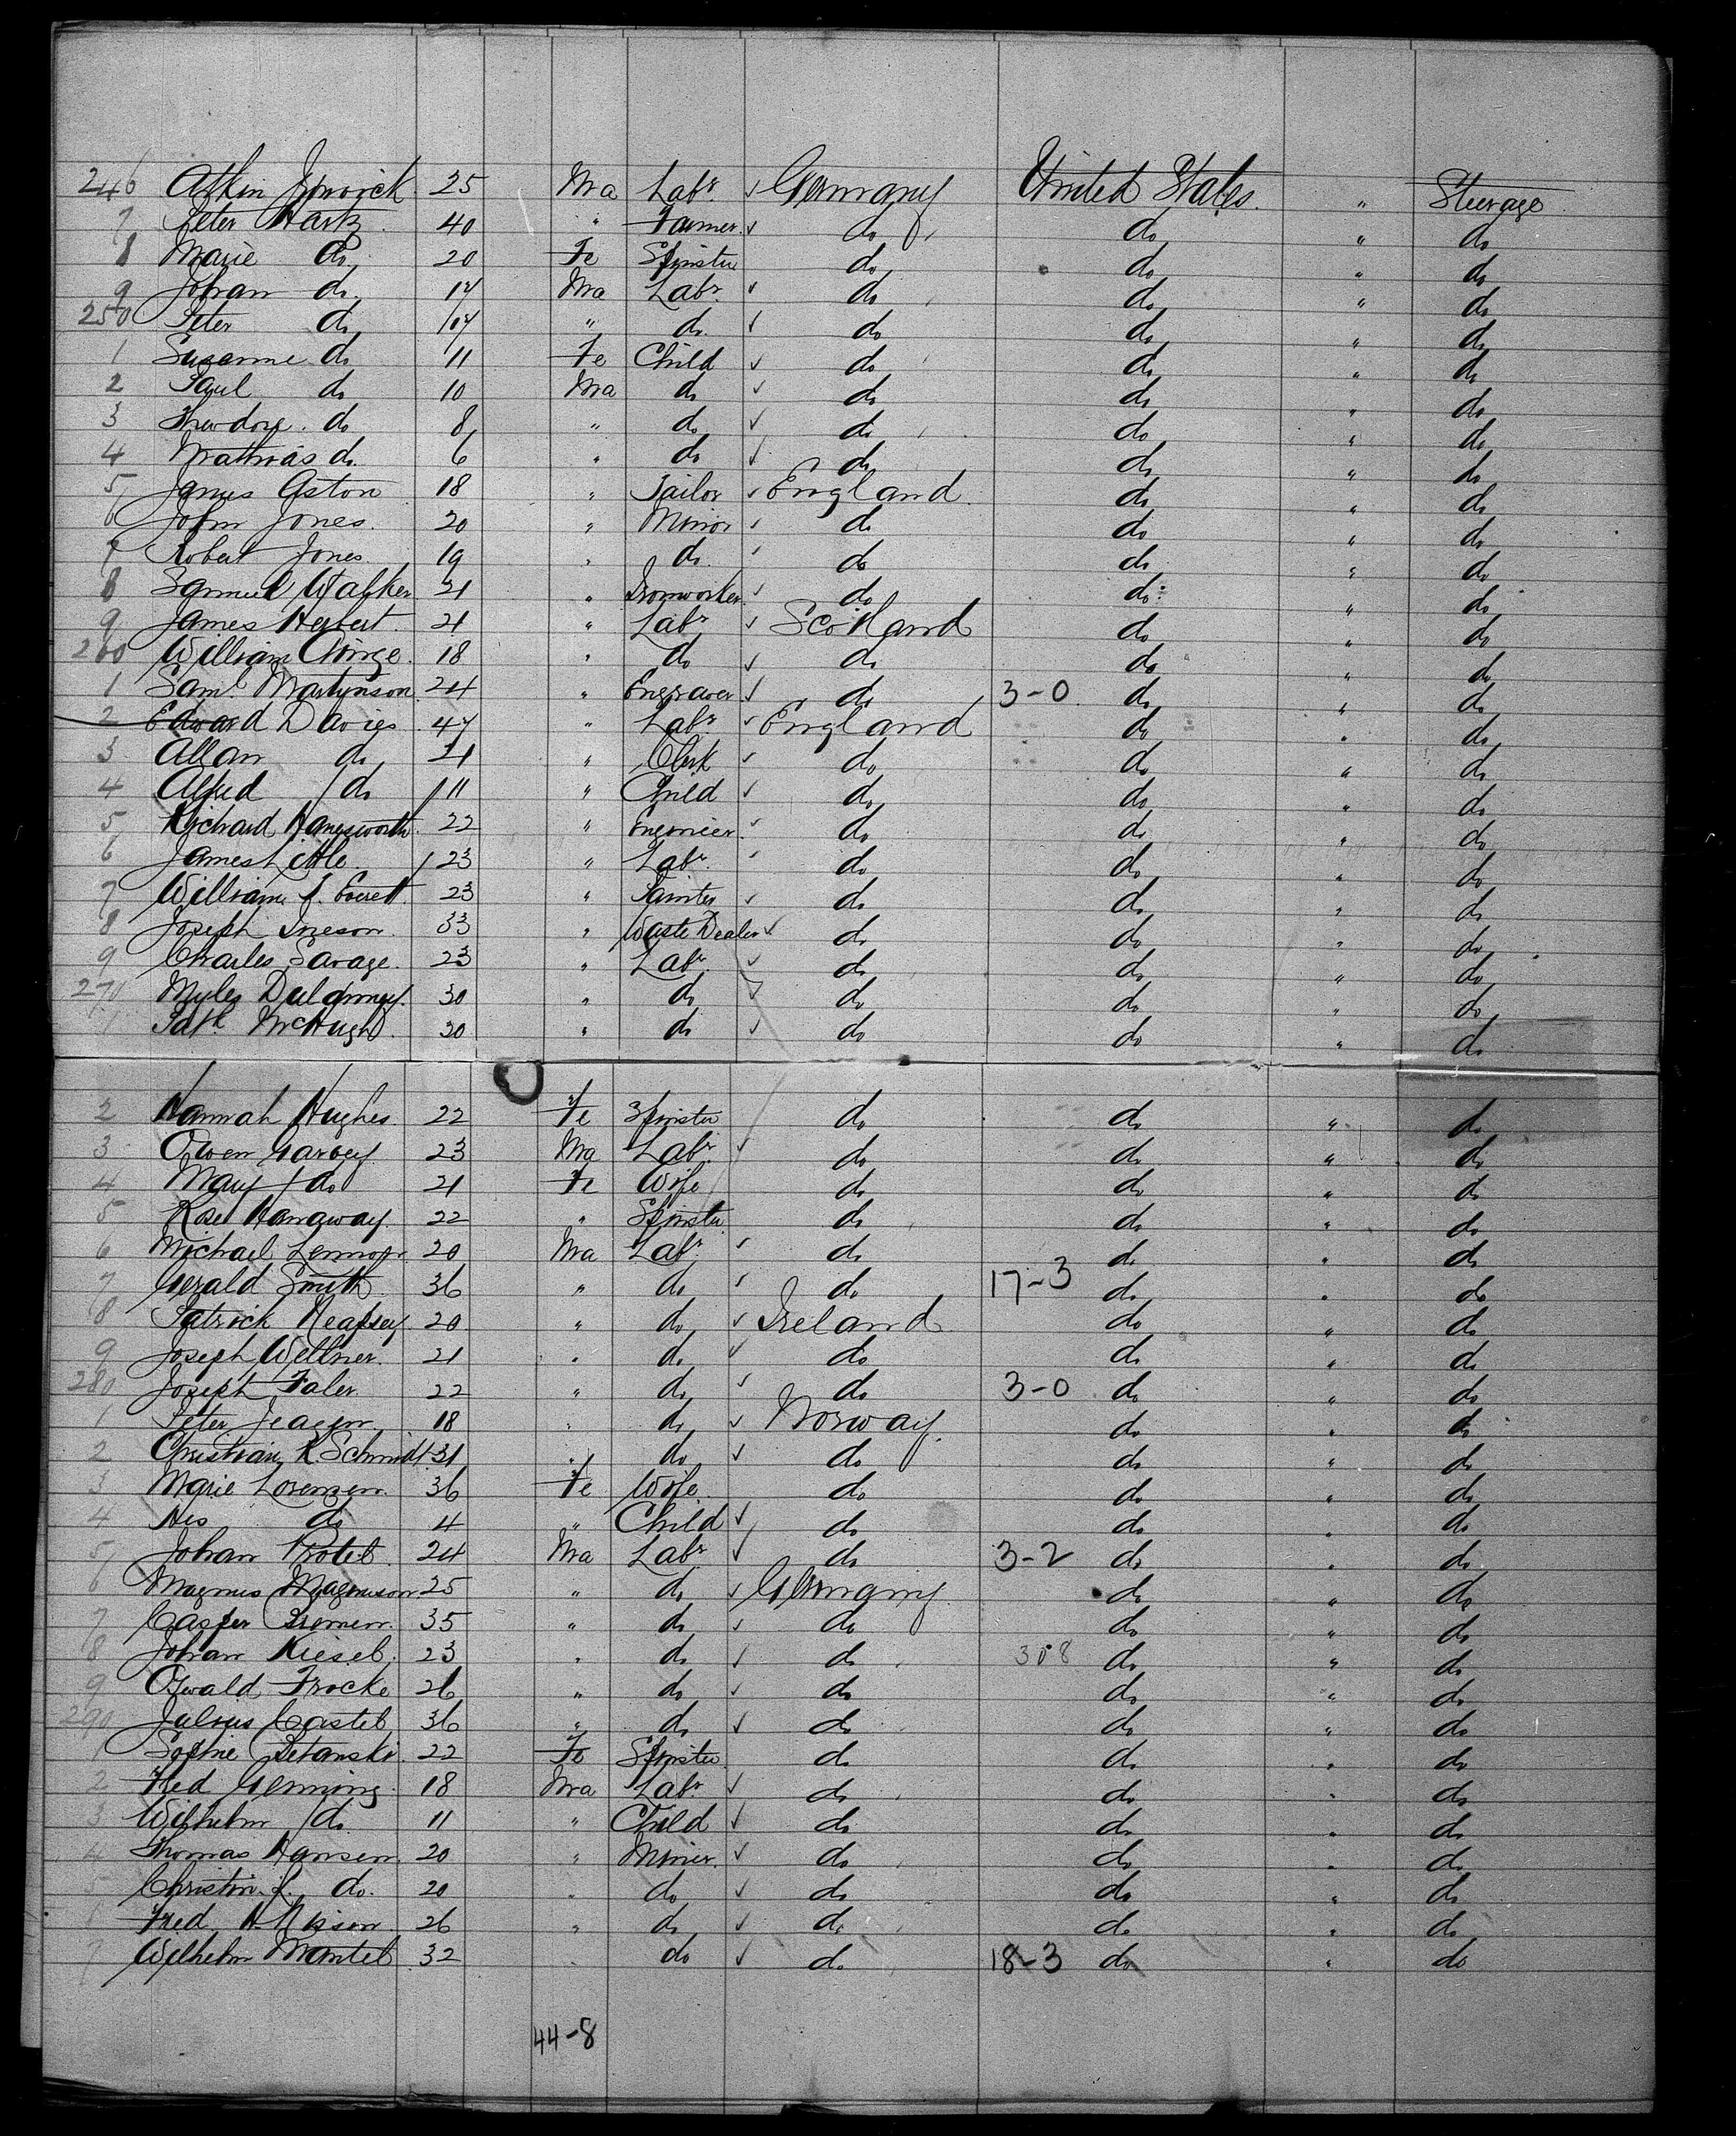 246 25 Ma Labr ✓ Germany United States. " Steerage
7 Peter Hartz. 40 " Farmer. ✓ do do " do
8 Marie do 20 Fe Spinster do do " do
9 Johan do Ma Labr ✓ do do " do
250 Peter do " do ✓ do do " do
1 Susanne do 11 Fe Child ✓ do do " do
2 Paul do 10 Ma do ✓ do do " do
3 Theodore. do 8 " do ✓ do do " do
4 Mathias do. 6 " do ✓ do do " do
5 James Aston 18 " Tailor ✓ England do " do
6 John Jones. 20 " Minor ✓ do do " do
7 Robert Jones 19 " do. ✓ do do " do
8 Samuel Walker 21 " Ironworker ✓ do do " do
9 James Herbert. 21 " Labr ✓ Scotland do " do
260 William 18 " do ✓ do do " do
1 Saml Martynson 24 " Engraver ✓ do 3-0 do " do
2 Edward Davies 47 " Labr ✓ England do " do
3 Allan do 21 " Clerk ✓ do do " do
4 Alfred do 11 " Child ✓ do do " do
5 Richard 22 " Engineer ✓ do do " do
6 James Little. 23 " Labr ✓ do do " do
7 William J. Everett. 23 " Painter ✓ do do " do
8 Joseph Ineson. 33 " Waste Dealer ✓ do do " do
9 Charles Savage. 23 " Labr ✓ do do " do
270 Myles 30 " do ✓ do do " do
1 Patk McHugh. 20 " do ✓ do do " do
2 Hannah Hughes. 22 Fe Spinster do do " do
3 Owen Garvey 23 Ma Labr ✓ do do " do
4 Mary do 21 Fe Wife do do " do
5 Rose Hanaway 22 " Spinster do do " do
6 Michael Lennon 20 Ma Labr ✓ do do " do
7 Gerald Smith. 36 " do ✓ do 17-3 do " do
8 Patrick Heapsey 20. " do ✓ Ireland do " do
9 Joseph Wellner. 21 " do ✓ do do " do
280 Joseph Faler. 22 " do ✓ do 3-0 do " do
1 Peter 18 " do ✓ Norway. do " do
2 Christian K. Schmidt 31 " do ✓ do do " do
3 Marie Lorenzen 36 Fe Wife do do " do
4 do 4 " Child ✓ do do " do
5 Johan 24 Ma Labr ✓ do 3-2 do " do
6 Magnus Magnuson. 25 " do ✓ Germany. do " do
7 Casper Bremen. 35 " do ✓ do do " do
8 Johan Kiesel. 23 " do ✓ do 308 do " do
9 Oswald Frocke 26 " do ✓ do do " do
290 Julius Castel 36 " do ✓ do do " do
1 Sophie Betanski. 22 Fe Spinster do do " do
2 Fred Genning. 18 Ma Labr ✓ do do " do
3 Wilhelm do. 11 " Child ✓ do do " do
4 Thomas Hansen. 20 " Miner. ✓ do do " do
5 Christin. J. do. 20 " do ✓ do do " do
6 Fred. H. Nissen. 26 " do ✓ do do " do
7 Wilhelm Mantel 32 do ✓ do 18-3 do " do
44-8